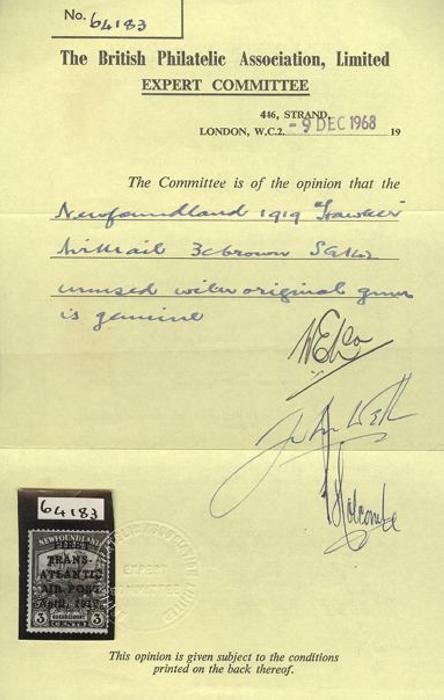 No. 64183
The British Philatelic Association, Limited
EXPERT COMMITTEE
446, STRAND,
LONDON, W.C.2. - 9 DEC 1968 19
The Committee is of the opinion that the
Newfoundland 1919 "Hawker"
Airmail 3c brown SG142
unused with original gum
is genuine
Holcombe
64183
NEWFOUNDLAND
FIRST
TRANS-
ATLANTIC
AIR POST
April, 1919.
3 CENTS 3
EXPERT
COMMITTEE
This opinion is given subject to the conditions
printed on the back thereof.